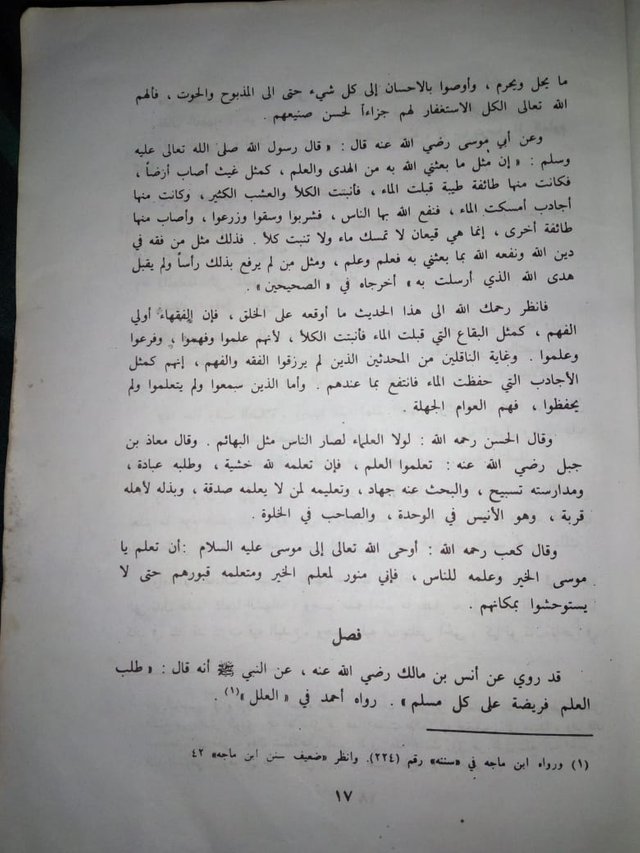 ما يحل ويحرم ، وأوصوا بالاحسان إلى كل شيء حتى الى المذبوح والحوت ، فألهم
الله تعالى الكل الاستغفار لهم جزاءاً لحسن صنيعهم .
وعن أبي موسى رضي الله عنه قال : « قال رسول الله صلى الله تعالى عليه
وسلم : « إن مثل ما بعثني الله به من الهدى والعلم ، كمثل غيث أصاب أرضاً ،
فكانت منها طائفة طيبة قبلت الماء ، فأنبتت الكلأ والعشب الكثير ، وكانت منها
أجادب أمسكت الماء ، فنفع الله بها الناس ، فشربوا وسقوا وزرعوا ، وأصاب منها
طائفة أخرى ، إنما هي قيعان لا تمسك ماء ولا تنبت كلأ . فذلك مثل من فقه في
دين الله ونفعه الله بما بعثني به فعلم وعلم ، ومثل من لم يرفع بذلك رأساً ولم يقبل
هدى الله الذي أرسلت به » أخرجاه في « الصحيحين » .
فانظر رحمك الله الى هذا الحديث ما أوقعه على الخلق ، فإن الفقهاء أولي
الفهم ، كمثل البقاع التي قبلت الماء فأنبتت الكلأ ، لأنهم علموا وفهموا ، وفرعوا
وعلموا . وغاية الناقلين من المحدثين الذين لم يرزقوا الفقه والفهم ، إنهم كمثل
الأجادب التي حفظت الماء فانتفع بما عندهم . وأما الذين سمعوا ولم يتعلموا ولم
يحفظوا ، فهم العوام الجهلة .
وقال الحسن رحمه الله : لولا العلماء لصار الناس مثل البهائم . وقال معاذ بن
جبل رضي الله عنه : تعلموا العلم ، فإن تعلمه لله خشية ، وطلبه عبادة ،
ومدارسته تسبيح ، والبحث عنه جهاد ، وتعليمه لمن لا يعلمه صدقة ، وبذله لأهله
قربة ، وهو الأنيس في الوحدة ، والصاحب في الخلوة .
وقال كعب رحمه الله : أوحى الله تعالى إلى موسى عليه السلام :أن تعلم يا
موسى الخير وعلمه للناس ، فإني منور لمعلم الخير ومتعلمه قبورهم حتى لا
يستوحشوا بمكانهم .
فصل
قد روي عن أنس بن مالك رضي الله عنه ، عن النبي ﷺ أنه قال : « طلب
العلم فريضة على كل مسلم » . رواه أحمد في « العلل »(١) .
(١) ورواه ابن ماجه في «سننه» رقم (٢٢٤). وانظر «ضعيف سنن ابن ماجه» ٤٢
١٧